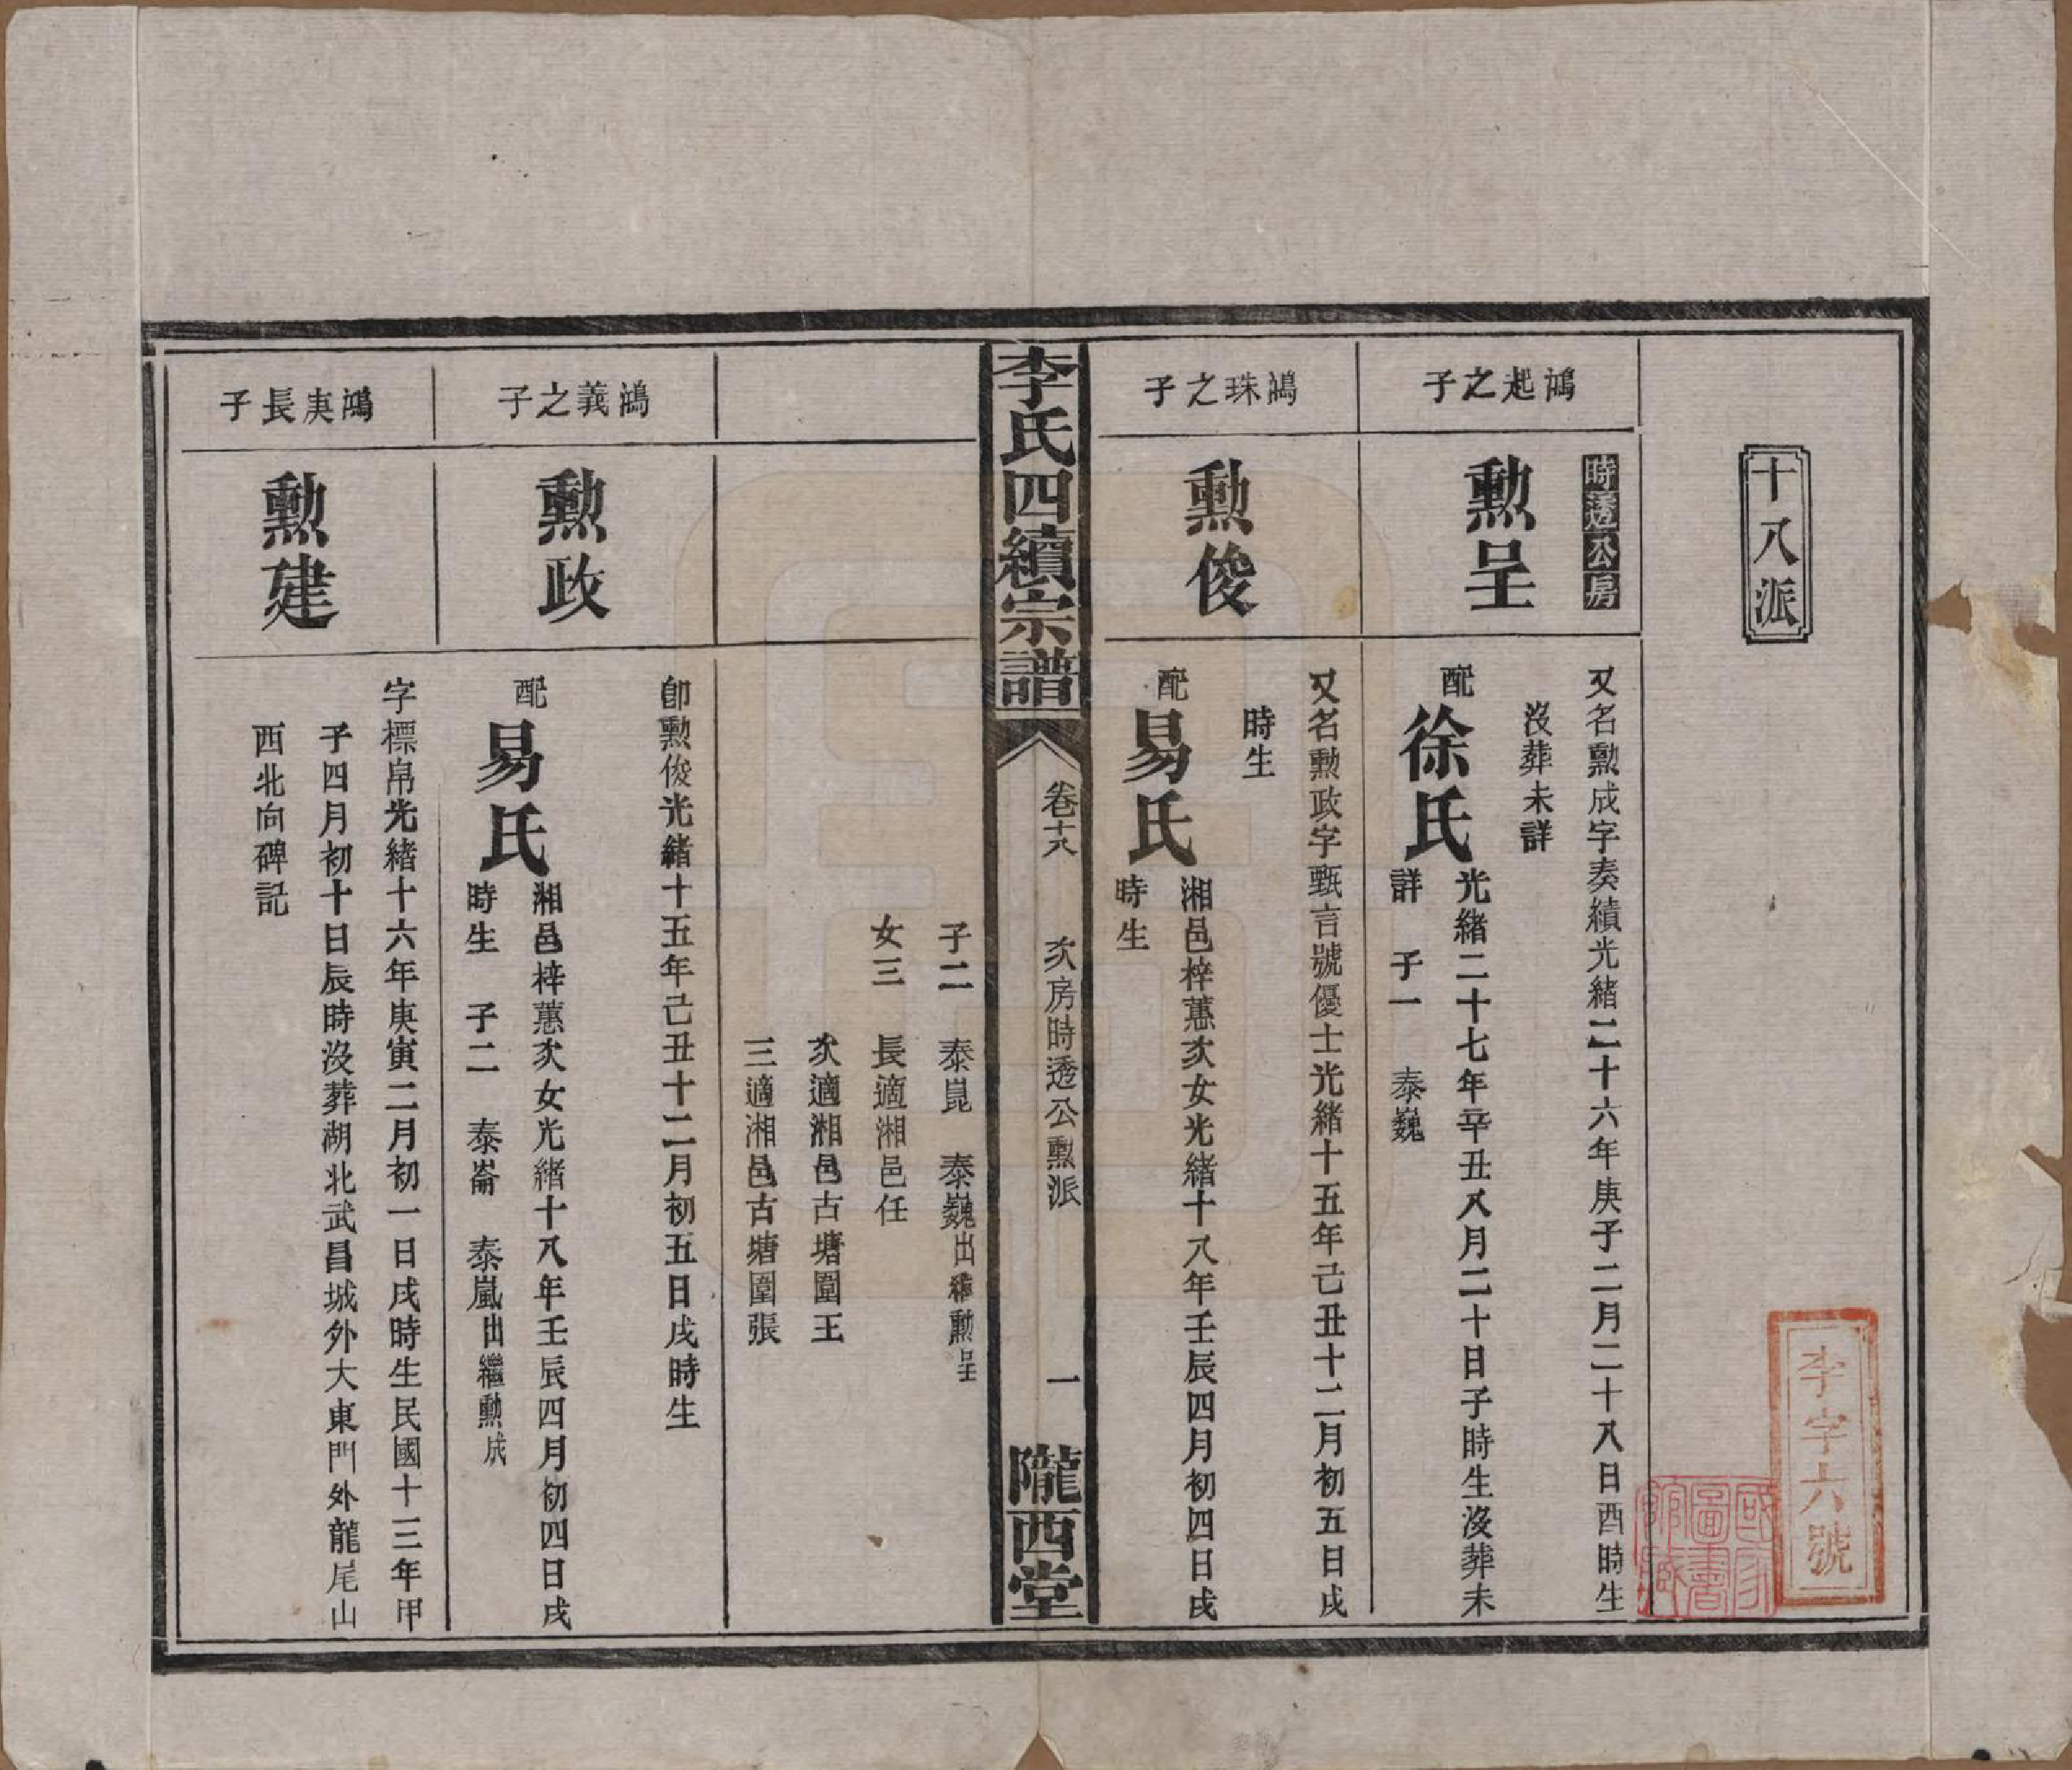 十八派
李字六號
國家圖書館藏
鴻起之子
時透公房
勲呈
又名勲成字奏績光緒二十六年庚子二月二十八日酉時生
沒葬未詳
配徐氏光緒二十七年辛丑八月二十日子時生沒葬未
詳 子一 泰巍
鴻珠之子
勲俊
又名勲政字甄言號優士光緒十五年己丑十二月初五日戌
時生
配易氏湘邑梓蕙次女光緒十八年壬辰四月初四日戌
時生
李氏四續宗譜
卷十八 次房時透公勲派 一
隴西堂
子二 泰崑 泰巍出繼勲呈
女三 長適湘邑任
次適湘邑古塘圍王
三適湘邑古塘圍張
鴻義之子
勲政
卽勲俊光緒十五年己丑十二月初五日戌時生
配易氏湘邑梓蕙次女光緒十八年壬辰四月初四日戌
時生 子二 泰崙 泰嵐出繼勲成
鴻庚長子
勲建
字標帛光緒十六年庚寅二月初一日戌時生民國十三年甲
子四月初十日辰時沒葬湖北武昌城外大東門外龍尾山
西北向碑記